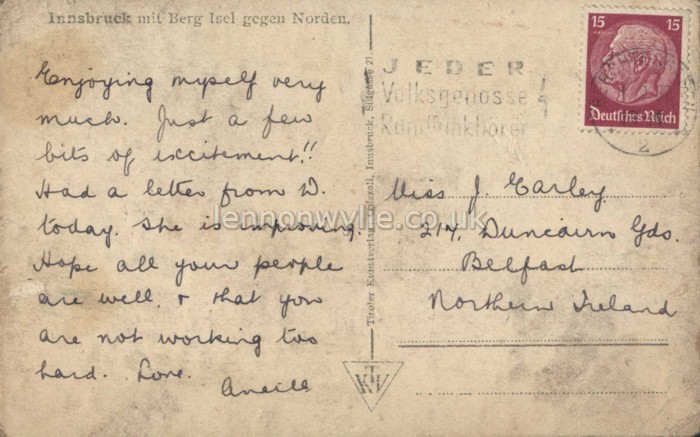 Innsbruck mit Berg Isel gegen Norden.
Enjoying myself very
much. Just a few
bits of excitement!!
Had a letter from D.
today. She is improving.
Hope all your people
are well, & that you
are not working too
hard. Love.
Tiroler Kunstverlag Innsbruck, Sillgasse 21.
KTV
JEDER
Volksgenosse
Rundfunkhörer!
15 15
Deutsches Reich
2
Miss J. Earley
217, Duncairn Gds.
Belfast
Northern Ireland
lennonwylie.co.uk